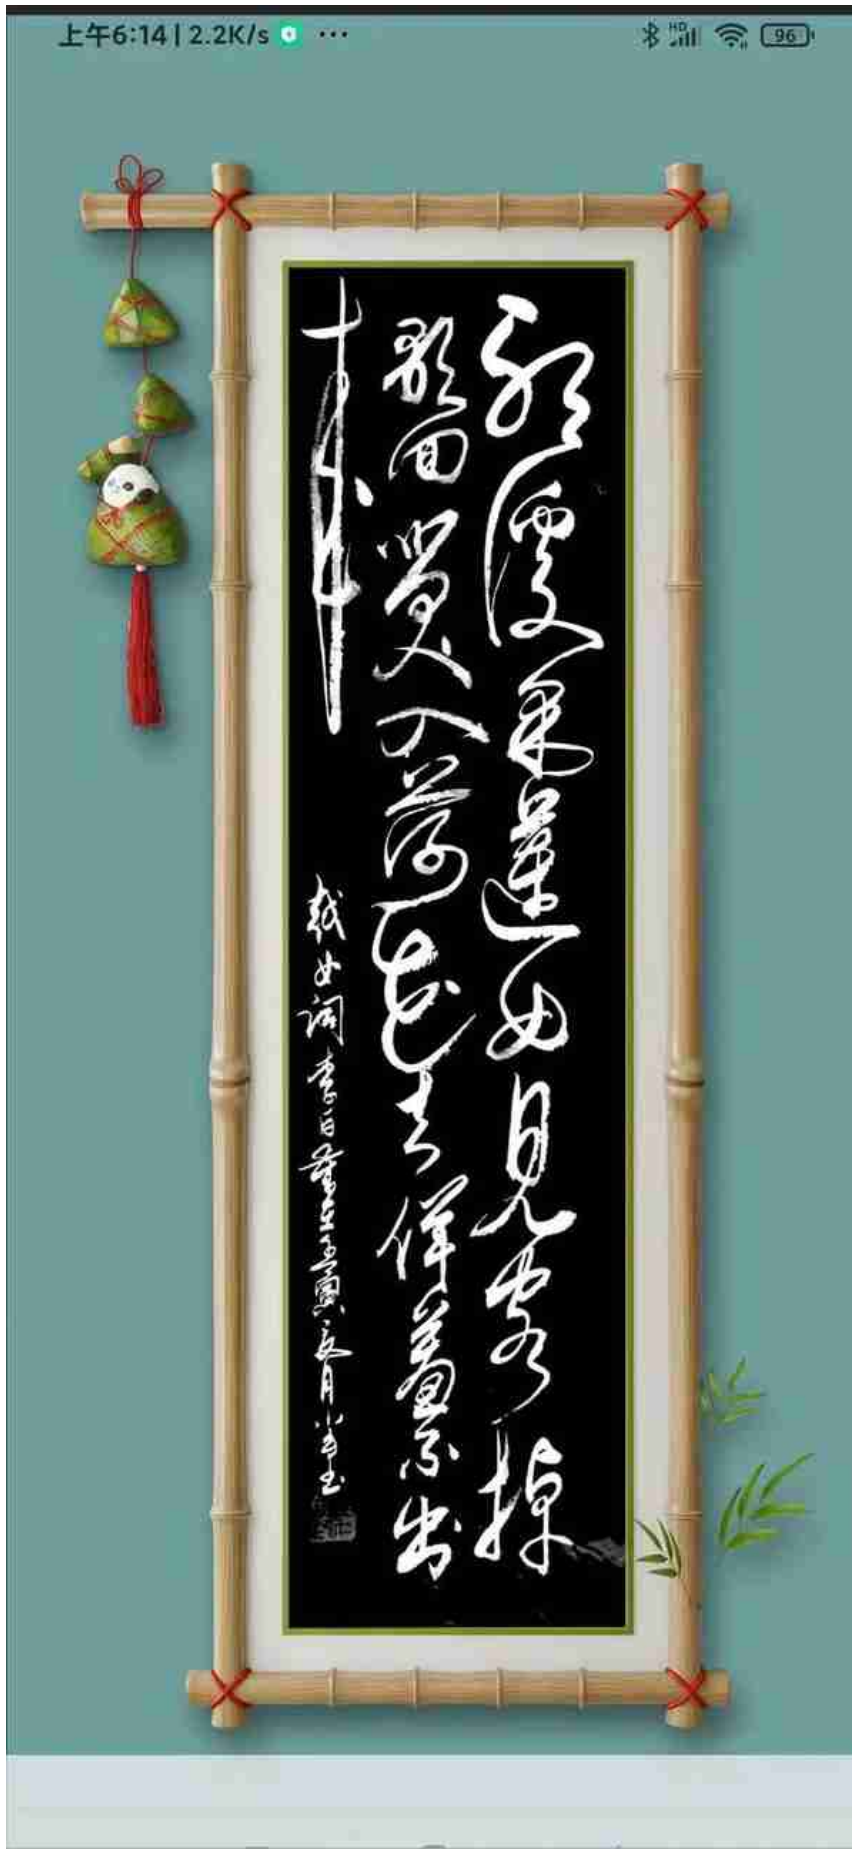 上午6:14 | 2.2K/s ··· HD 96
耶溪采蓮女見客棹
歌回笑入荷花去佯羞不出
来
越女词李白 壬寅夏月